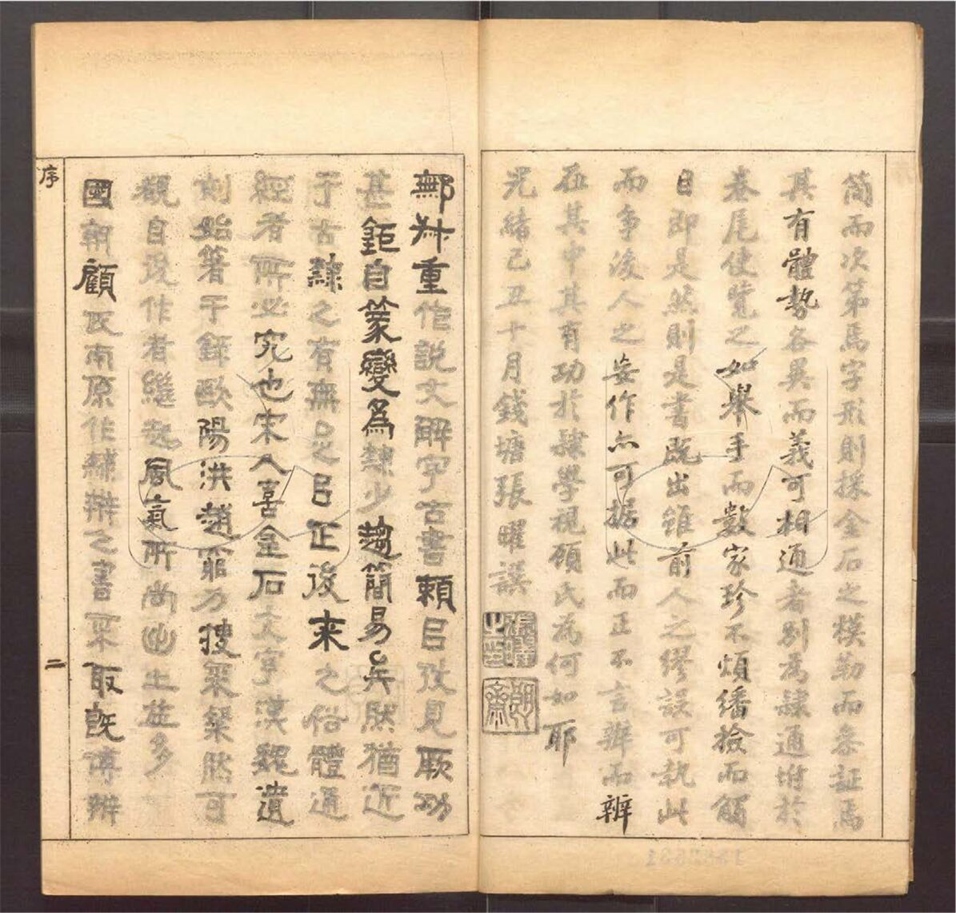 簡而次第焉字形則採金石之模勒而条証焉
其有體勢各異而義可相通者別為隸通坿於
卷尾使覽之如舉手而數家珍不煩繙撿而觸
目即是然則是書既出雖前人之繆誤可執此
而爭後人之妄作亦可據此而正不言辦而辨
在其中其有功於隸學視顧氏為何如耶
光緒己丑十月錢塘張曜譔
鄦尗重作說文解字古書賴㠯攷見厥功
甚鉅自篆變為隸少趨簡易矣然猶近
于古隸之有無足㠯正後来之俗體通
經者所必究也宋人喜金石文字漢魏遺
刻始箸于錄歐陽洪趙窮力搜羅粲然可
觀自後作者繼起風氣所尚幽出益多
國朝顧氏南原作隸辯之書采取既博辨
序
二